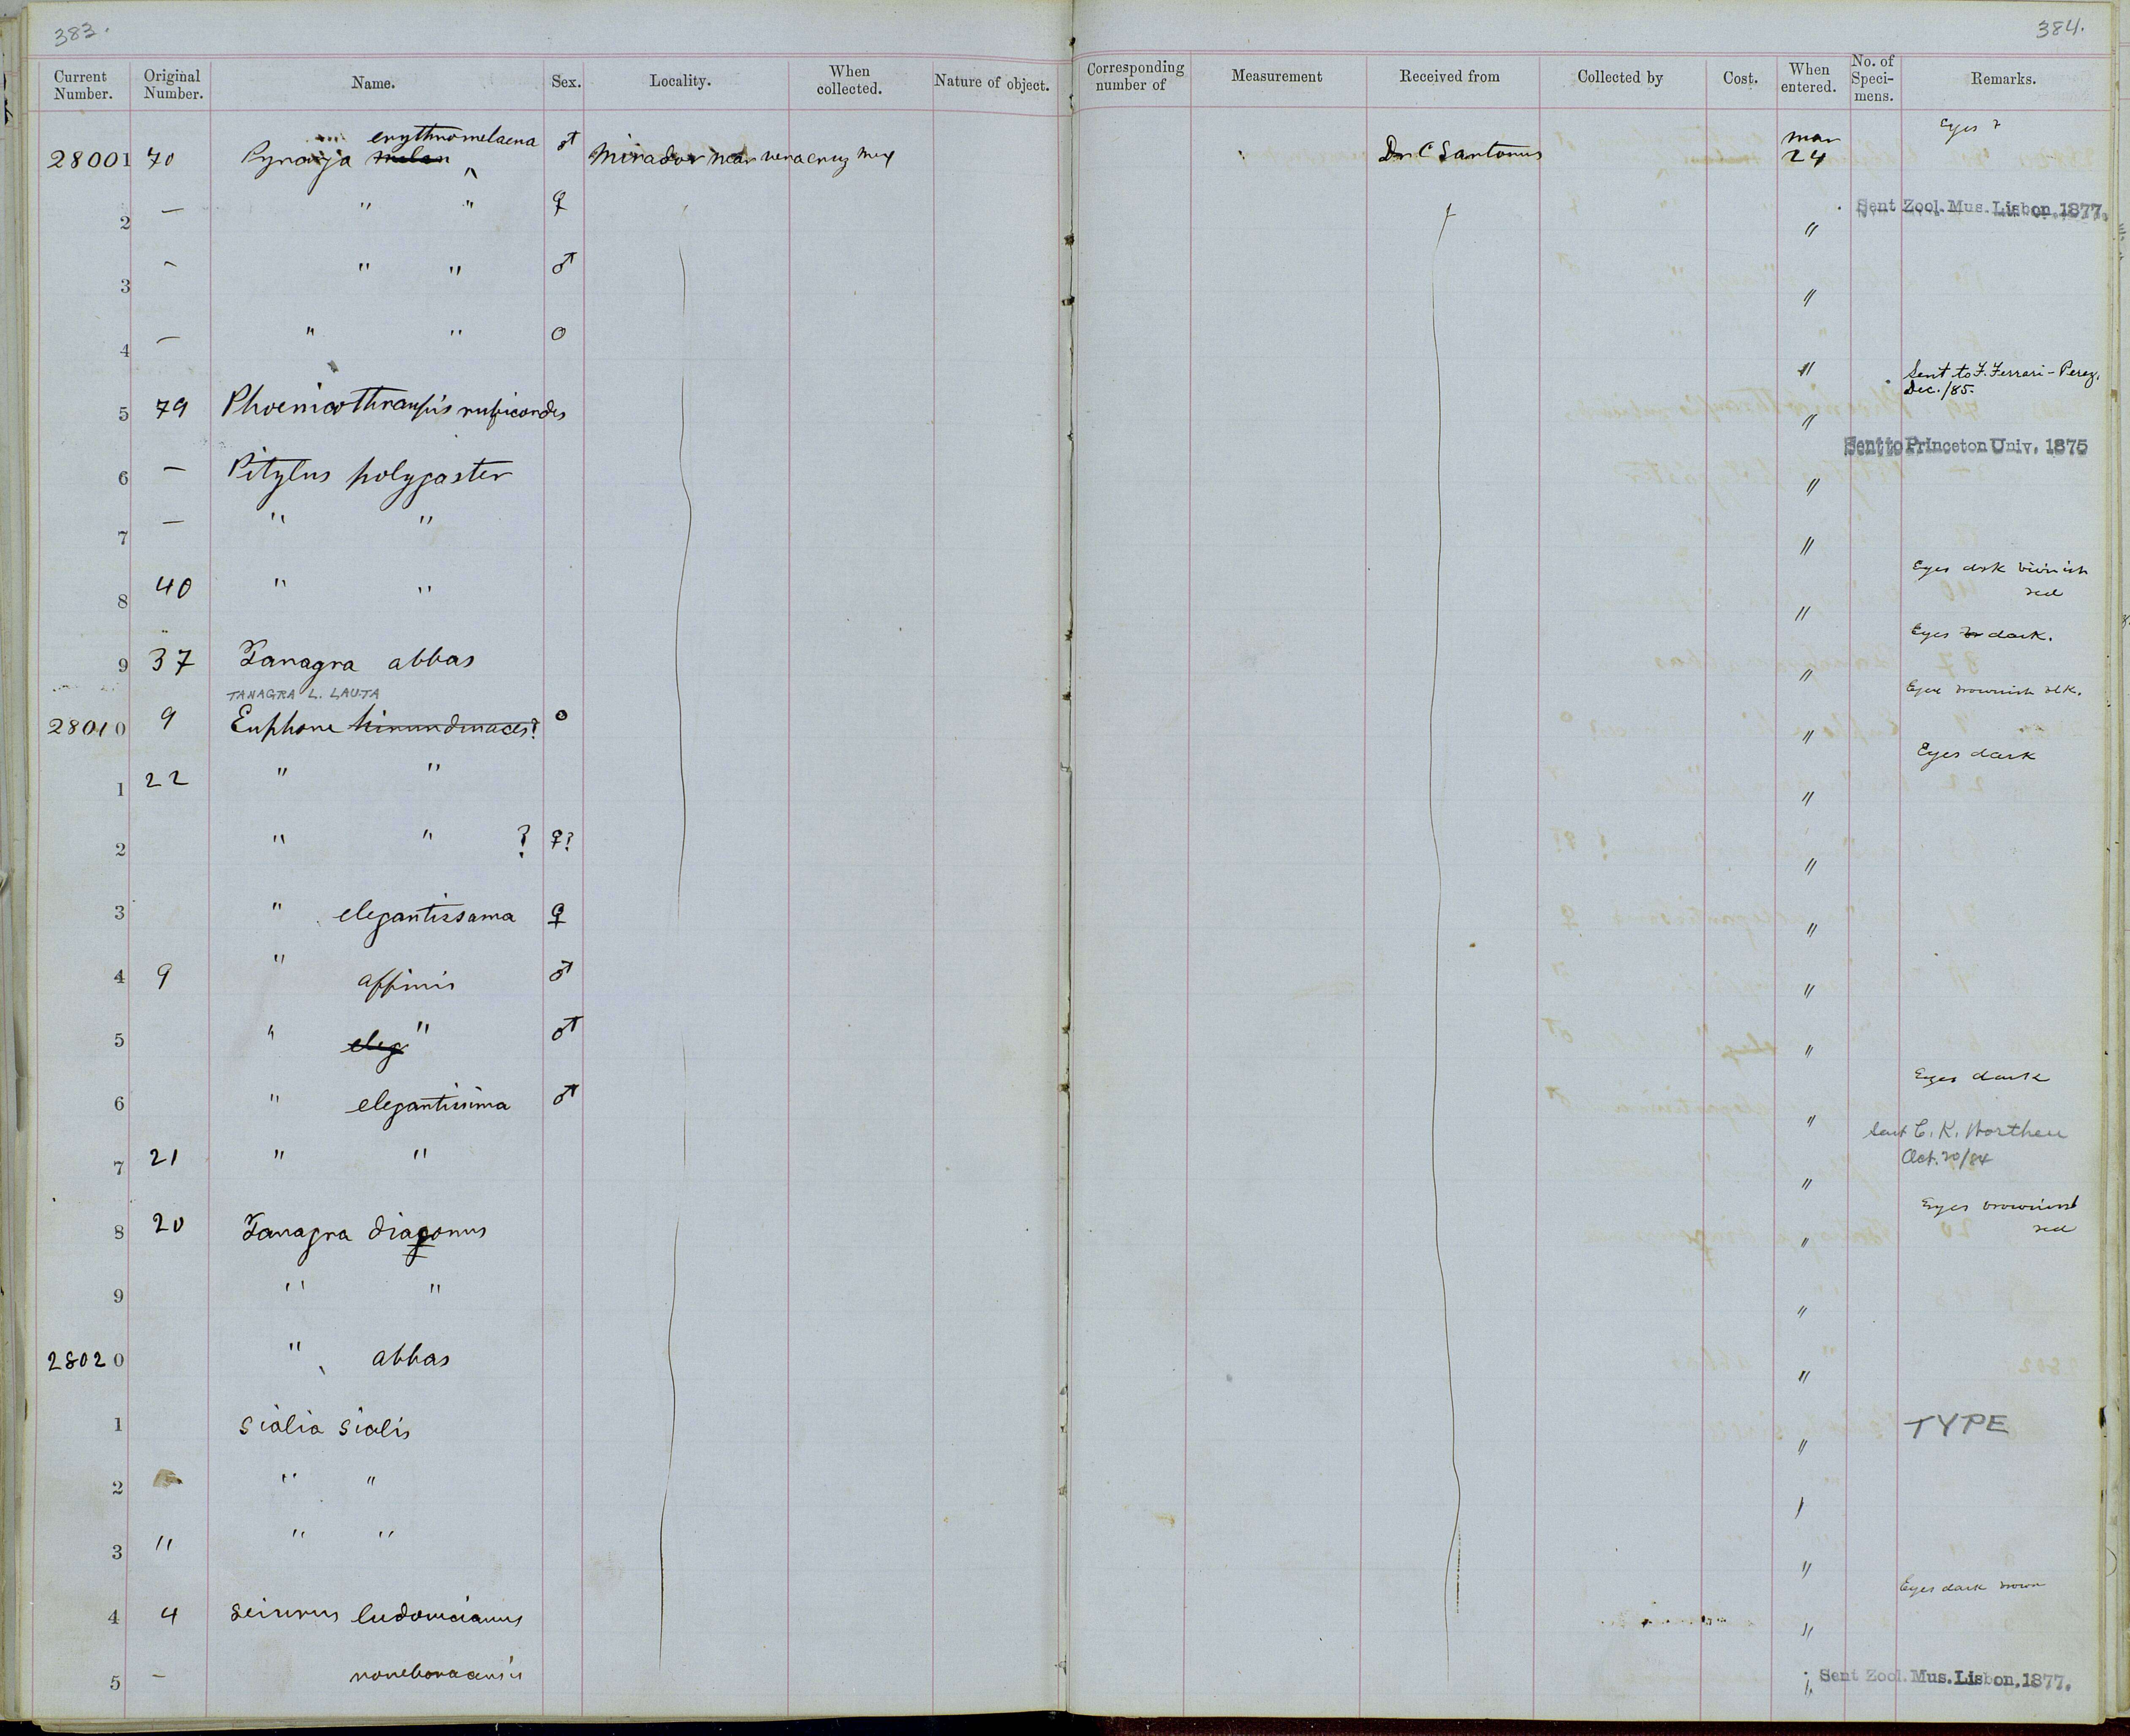 383.
384.
Current Number. Original Number. Name. Sex. Locality. When collected. Nature of object. Corresponding number of Measurement Received from Collected by Cost. When entered. No. of Speci- mens. Remarks.
erythromelaena
28001 70 Pyranga melan ♂ Mirador near vera cruz Mex Dr C Sartorius Mar 24 Eyes
2 — " " ♀ " Sent Zool. Mus. Lisbon. 1877.
3 — " " ♂ "
4 — " " O " Sent to F. Ferrari-Perez, Dec./85.
5 79 Phoenicothraupis rubicoides " Sent to Princeton Univ. 1875
6 — Pitylus polygaster "
7 — " " "
8 40 " " " Eyes drk red
9 37 Tanagra abbas " Eyes dark.
TANAGRA L. LAUTA
28010 9 Euphone hirundinacea? O " Eyes brownish blk.
1 22 " " " Eyes dark
2 " " ? ♀? "
3 " elegantissama ♀ "
4 9 " affinis ♂ "
5 " eleg " ♂ "
6 " elegantissima ♂ " Eyes dark
7 21 " " " Sent C. K. Worthen Oct. 20/84
8 20 Tanagra diaconus " Eyes brownish red
9 " " "
28020 " abbas "
1 Sialia Sialis " TYPE
2 " "
3 " " " "
4 4 Seiurus ludovicianus " Eyes dark brown
5 — noveboracensis " Sent Zool. Mus. Lisbon. 1877.